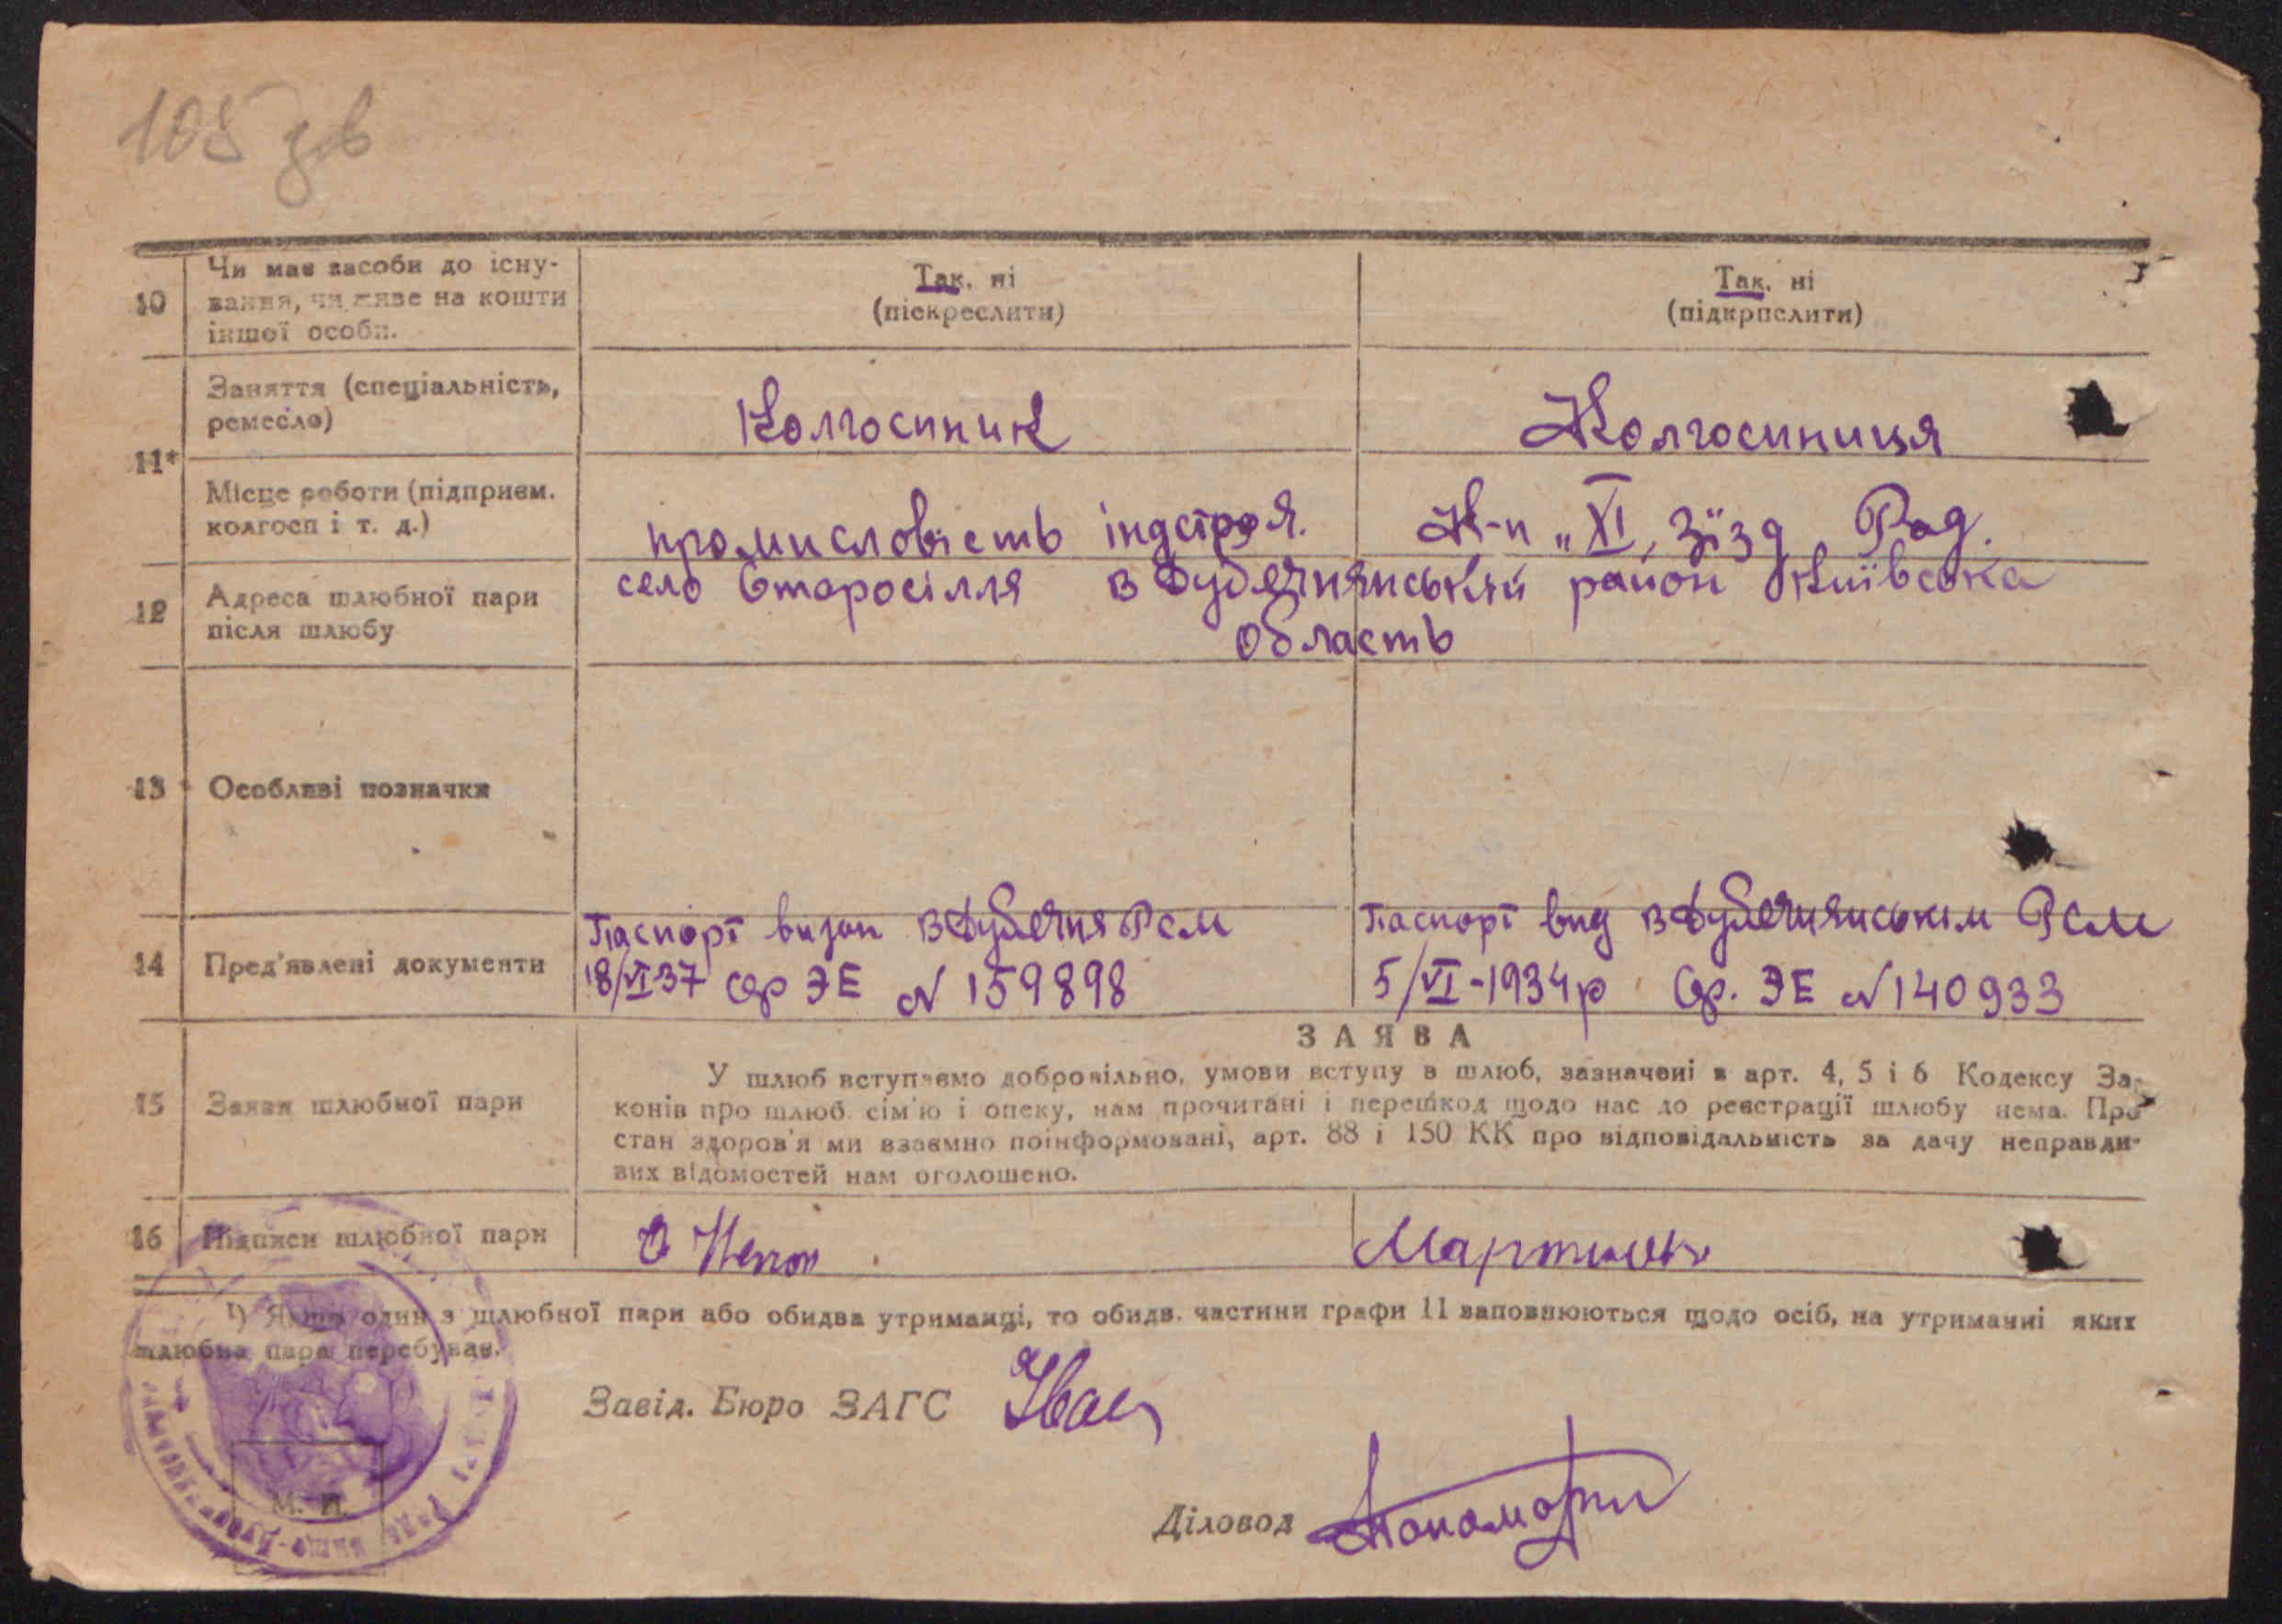 105 зв
10
Чи має засоби до існу-
вання, чи живе на кошти
іншої особи.
Так, ні
(піскреслити)
Так, ні
(підкрислити)
11*
Заняття (спеціальність,
ремесло)
Колгоспник
Колгоспниця
Місце роботи (підприєм.
колгосп і т. д.)
промисловість індстроя.
К-п „XI, Зїзд Рад.
12
Адреса шлюбної пари
після шлюбу
село Старосілля В Дубечнянський район Київська
область
13
Особливі позначки
14
Пред'явлені документи
Паспорт видан В Дубечня Рсм
18/VI-37 сєр ЭЕ № 159898
Паспорт вид В Дубечнянським Рсм
5/VI-1934р Сєр. ЭЕ №140933
15
Заява шлюбної пари
ЗАЯВА
У шлюб вступаємо добровільно, умови вступу в шлюб, зазначені в арт. 4, 5 і 6 Кодексу За-
конів про шлюб. сім'ю і опеку, нам прочитані і перешкод щодо нас до реєстрації шлюбу нема. Про
стан здоров'я ми взаємно поінформовані, арт. 88 і 150 КК про відповідальність за дачу неправди-
вих відомостей нам оголошено.
16
Підписи шлюбної пари
¹) Якщо один з шлюбної пари або обидва утриманці, то обидв. частини графи 11 заповнюються щодо осіб, на утриманні яких
шлюбна пара перебуває.
Завід. Бюро ЗАГС
М. П.
Діловод